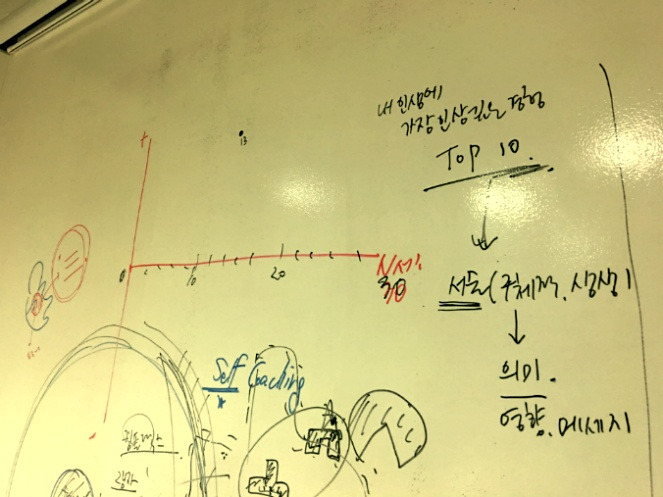 내 인생에
가장 인상깊은 경험
Top 10.
13
+
0
10
20
30
서술(구체적, 생생)
의미.
영향. 메세지
Self Coaching